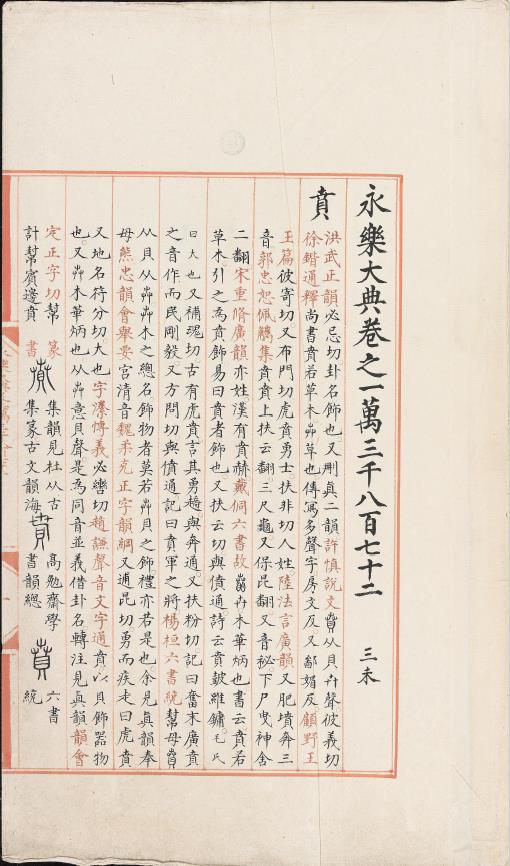 永樂大典卷之一萬三千八百七十二 三未
賁 洪武正韻必忌切卦名飾也又刪真二韻許慎說文賁从貝卉聲彼義切
徐鍇通釋尚書賁若草木艸草也傳寫多聲字房文反又鄙媚反顧野王
玉篇彼寄切又布門切虎賁勇士扶非切人姓陸法言廣韻又肥墳奔三
音郭忠恕佩觿集賁賁上扶云翻三尺龜又保昆翻又音祕下尸曳神舍
二翻宋重脩廣韻亦姓漢有賁赫戴侗六書故卉木華炳也書云賁若
草木引之為賁飾易曰賁者飾也又扶云切與僨通詩云賁鼓維鏞毛氏
曰大也又補瑰切古有虎賁言其勇趫與奔通又扶粉切記曰奮末廣賁
之音作而民剛毅又方問切與僨通記曰賁軍之將楊桓六書統幫母賁
从貝从芔艸木之總名飾物者莫若芔貝之飾禮亦若是也余見真韻奉
母熊忠韻會舉要宮清音魏柔克正字韻綱又逋昆切勇而疾走曰虎賁
又地名符分切大也字潫博義必轡切趙謙聲音文字通賁以貝飾器物
也又艸木華炳也从芔意貝聲是為同音並義借卦名轉注見真韻韻會
定正字切幫 篆 集韻見杜从古 高勉齋學 六書
計幫賓邊賁 書 集篆古文韻海 書韻總 統